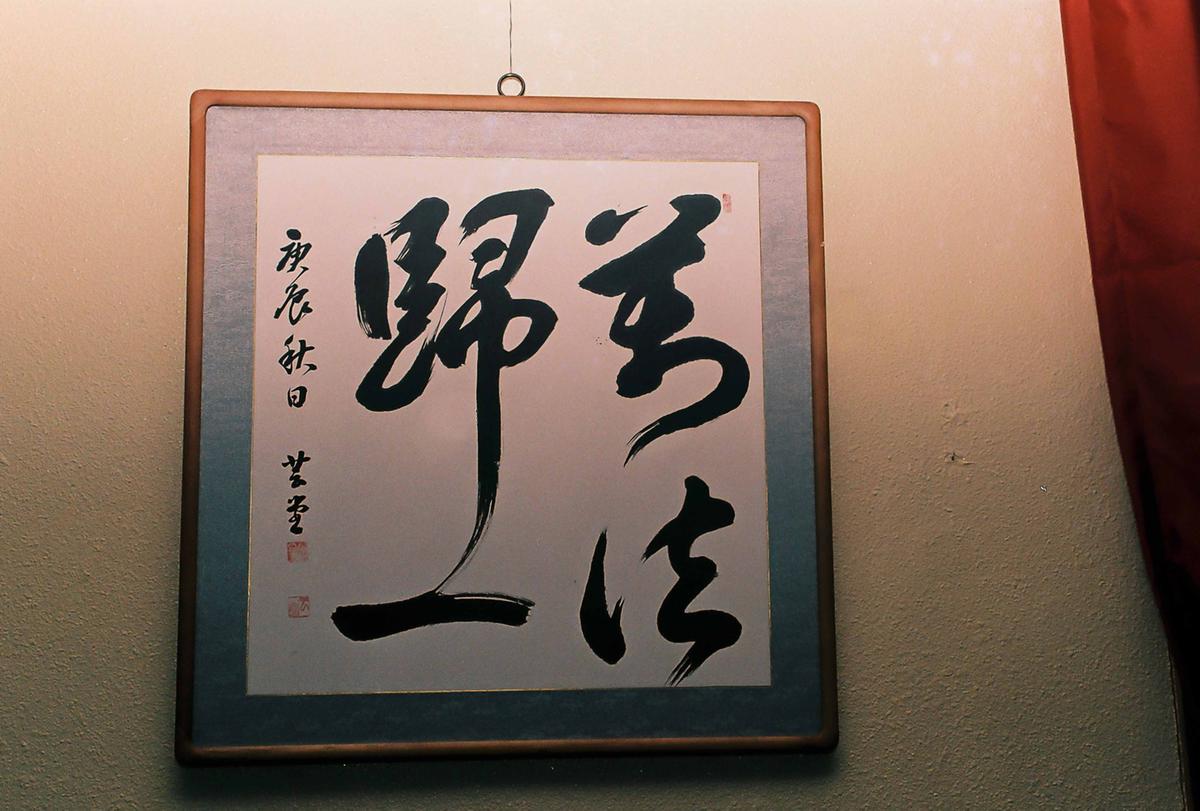 萬法
歸一
庚辰秋日 芸堂